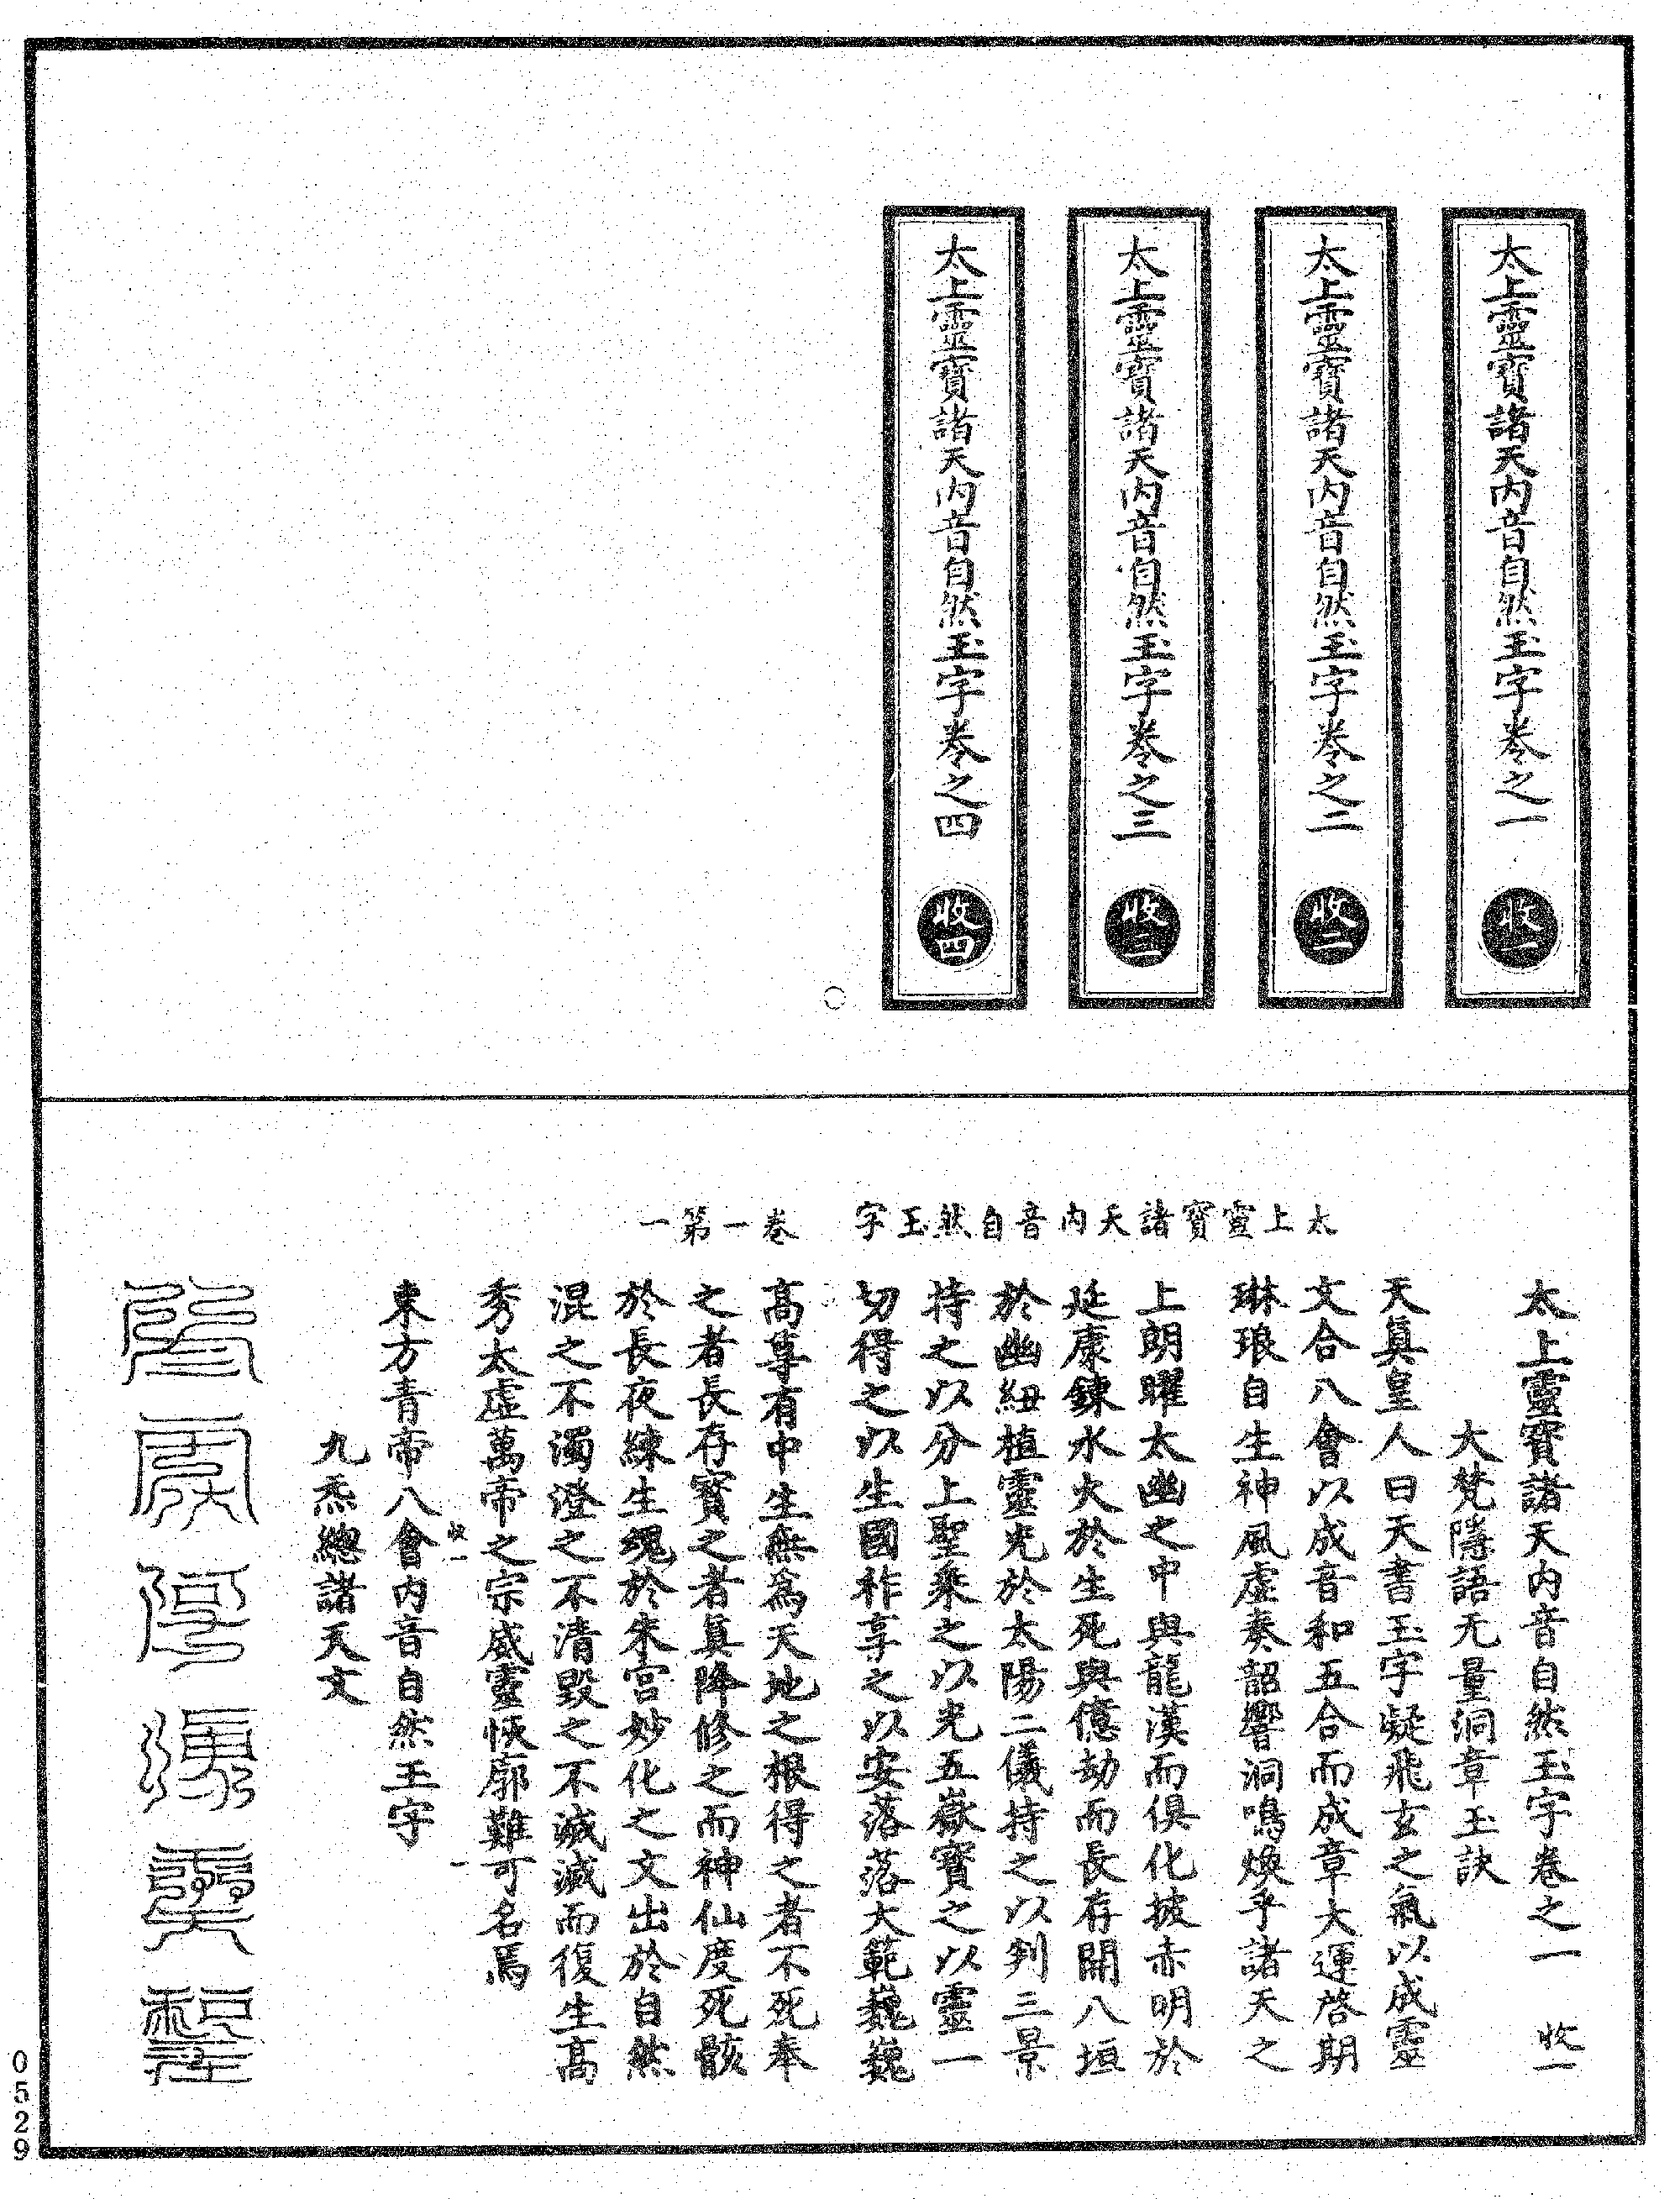 太上靈寶諸天內音自然玉字卷之一
收一
太上靈寶諸天內音自然玉字卷之二
收二
太上靈寶諸天內音自然玉字卷之三
收三
太上靈寶諸天內音自然玉字卷之四
收四
太上靈寶諸天內音自然玉字 卷一第一
太上靈寶諸天內音自然玉字卷之一 收一
大梵隱語无量洞章玉訣
天眞皇人曰天書玉字凝飛玄之氣以成靈
文合八會以成音和五合而成章大運啓期
琳琅自生神風虛奏韶響洞鳴煥乎諸天之
上朗曜太幽之中與龍漢而俱化披赤明於
延康鍊水火於生死與億劫而長存開八垣
於幽紐植靈光於太陽二儀持之以判三景
持之以分上聖乘之以光五嶽寶之以靈一
切得之以生國祚享之以安落落大範巍巍
高尊有中生無爲天地之根得之者不死奉
之者長存寶之者眞降修之而神仙度死骸
於長夜練生魂於朱宮妙化之文出於自然
混之不濁澄之不清毀之不滅滅而復生高
秀太虛萬帝之宗威靈恢廓難可名焉
收一 一
東方青帝八會內音自然玉字
九炁總諸天文
0529